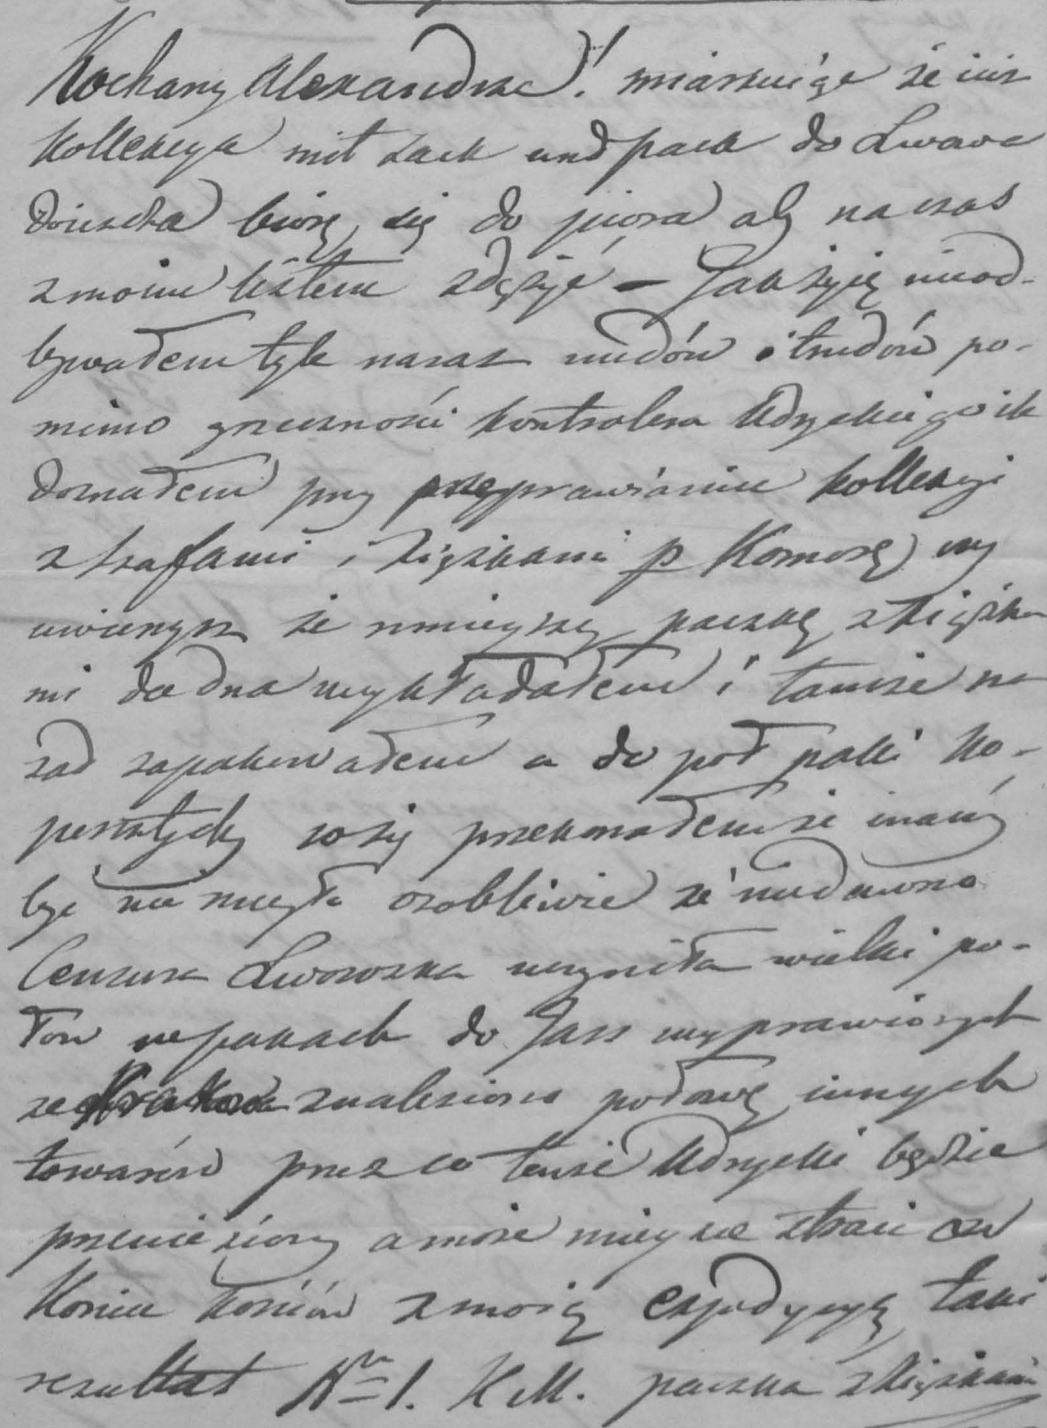 Kochany Alexandrze! miarkuiąc że iuż
kollekcya mit sack und pack do Lwowa
doiechała biorę się do pióra aby na czas
z moim listem zdążyć — Jak żyię nieod-
bywałem tyle naraz nudów i trudów po-
mimo grzeczności kontrolera Udryckiego ile
doznałem przy przeprawianiu kollekcyi
z szafami i książkami p Komorę, czy
uwierzysz że mnieyszą paczkę z książka
mi do dna wykładałem i tamże na
zad zapakowałem a do pół paki ko-
persztychy rożą przekonałem że inaczy
być nie mogło osobliwie że niedawno
Censura Lwowska uczyniła wielki po-
łow w pakach do Jass wyprawionych
ze znaleziono połowę innych
towarów przez co tenże Udrycki będzie
przeniesiony a może mieysce straci ow
koniec końców z moią expedycyą taki
rezultat Nro 1. K M. paczka z książkami